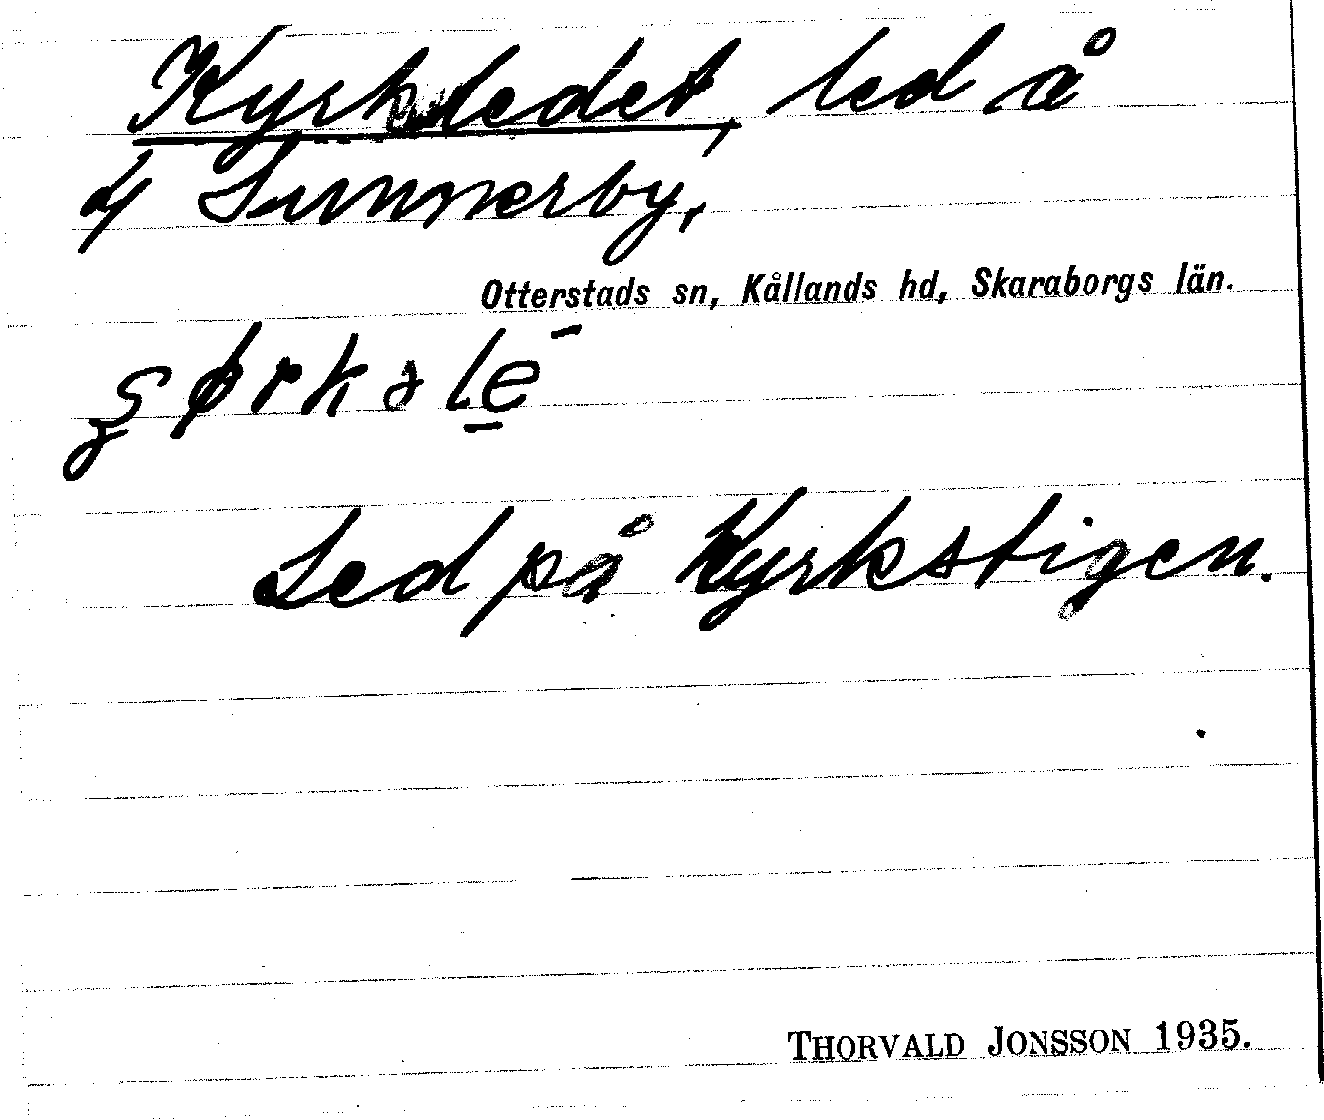 Kyrkledet, led å
d/ Sunnerby,
Otterstads sn, Kållands hd, Skaraborgs län.
Led på Kyrkstigen.
THORVALD JONSSON 1935.